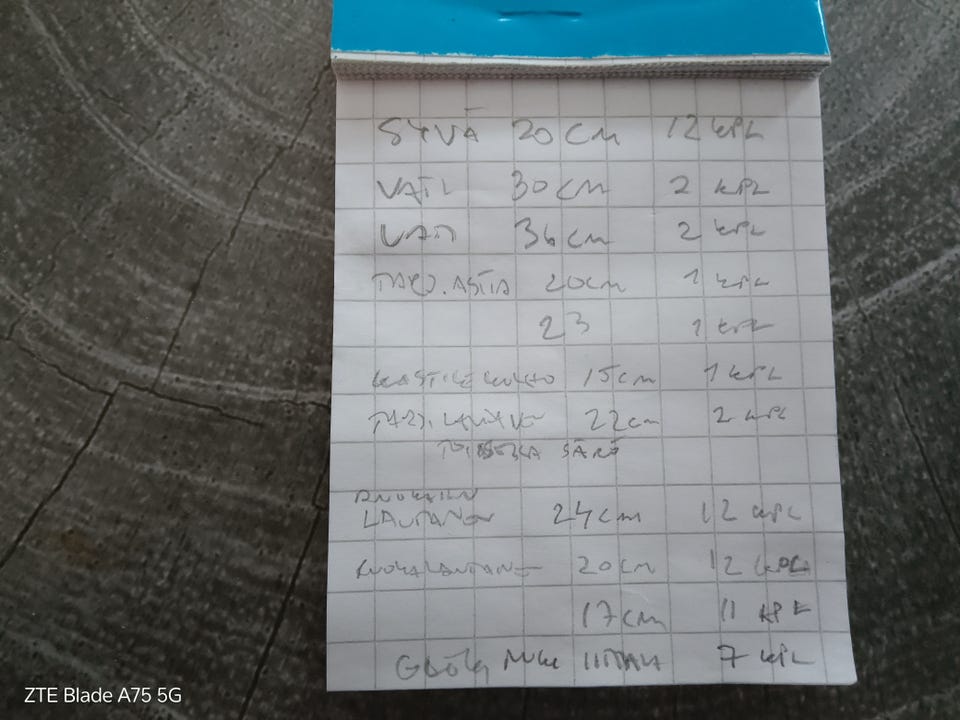 SYVÄ 20 CM 12 KPL
VATI 30 CM 2 KPL
VATI 36 CM 2 KPL
TARJ. ASTIA 20 CM 1 KPL
23 1 KPL
KASTIKE KULHO 15 cm 1 KPL
TARJ. LAUTANEN 22 cm 2 KPL
TOISESSA SÄRÖ
RUOKAILU
LAUTANEN 24 cm 12 KPL
RUOKALAUTANEN 20 cm 12 KPL
17 cm 11 KPL
IITTALA 7 KPL
ZTE Blade A75 5G